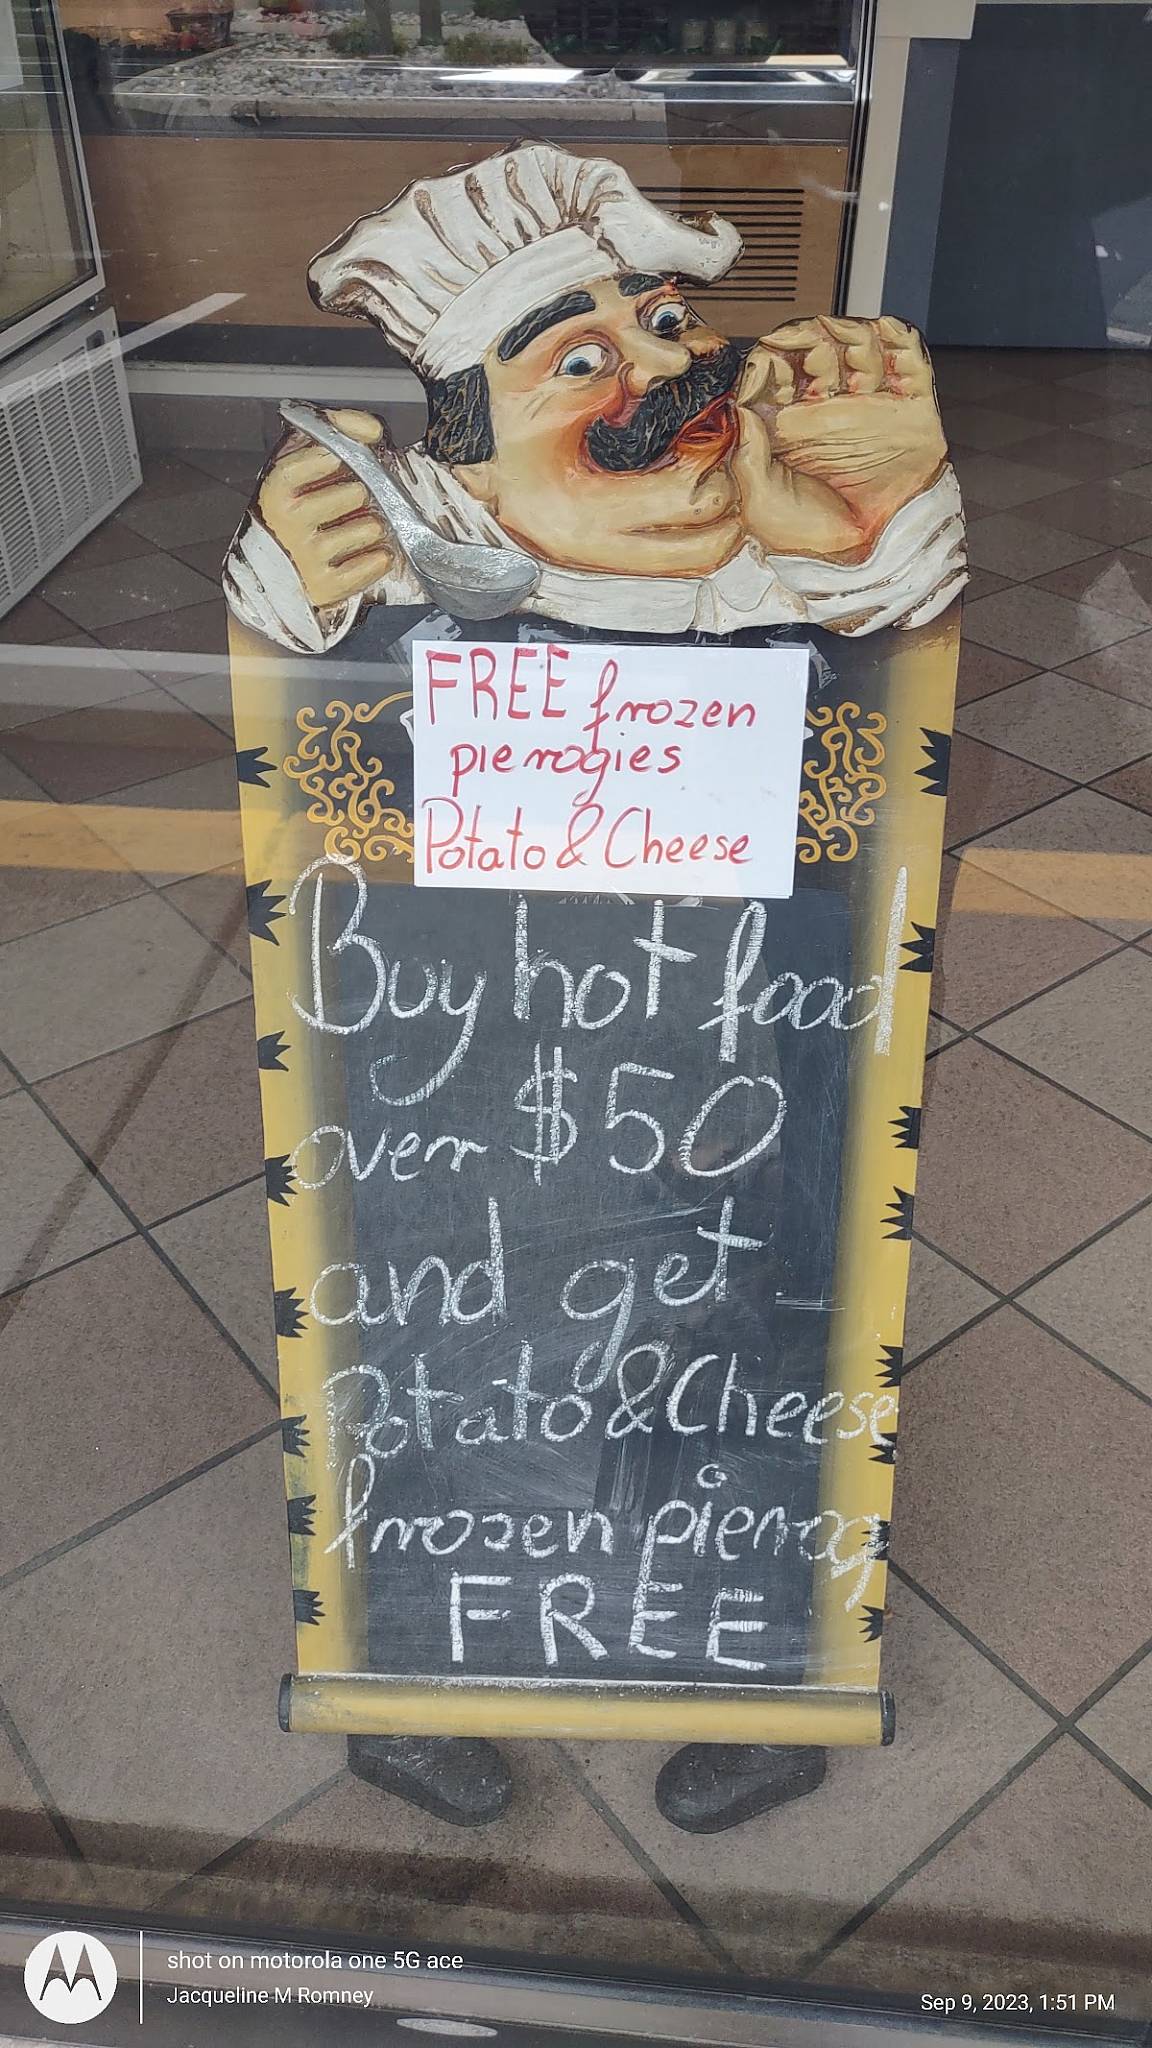 FREE frozen
pierogies
Potato & Cheese
Buy hot food
over $50
and get
Potato & Cheese
frozen pierog
FREE
shot on motorola one 5G ace
Jacqueline M Romney
Sep 9, 2023, 1:51 PM